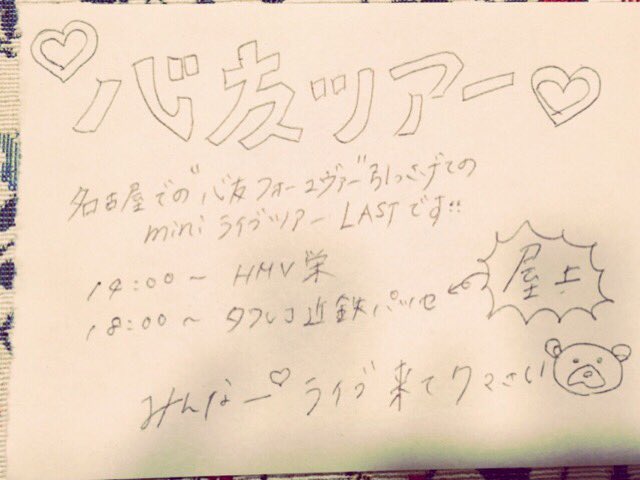 心友ツアー
名古屋での"心友フォーエヴァー"引っさげての
mini ライブツアー LASTです!!
14:00〜 HMV栄
18:00〜 タワレコ近鉄パッセ
屋上
みんなー♡ライブ来てクマさい